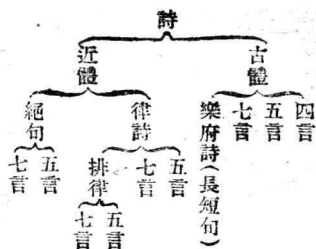 詩
古體
四言
五言
七言
樂府詩(長短句)
近體
律詩
五言
七言
排律
五言
七言
絕句
五言
七言